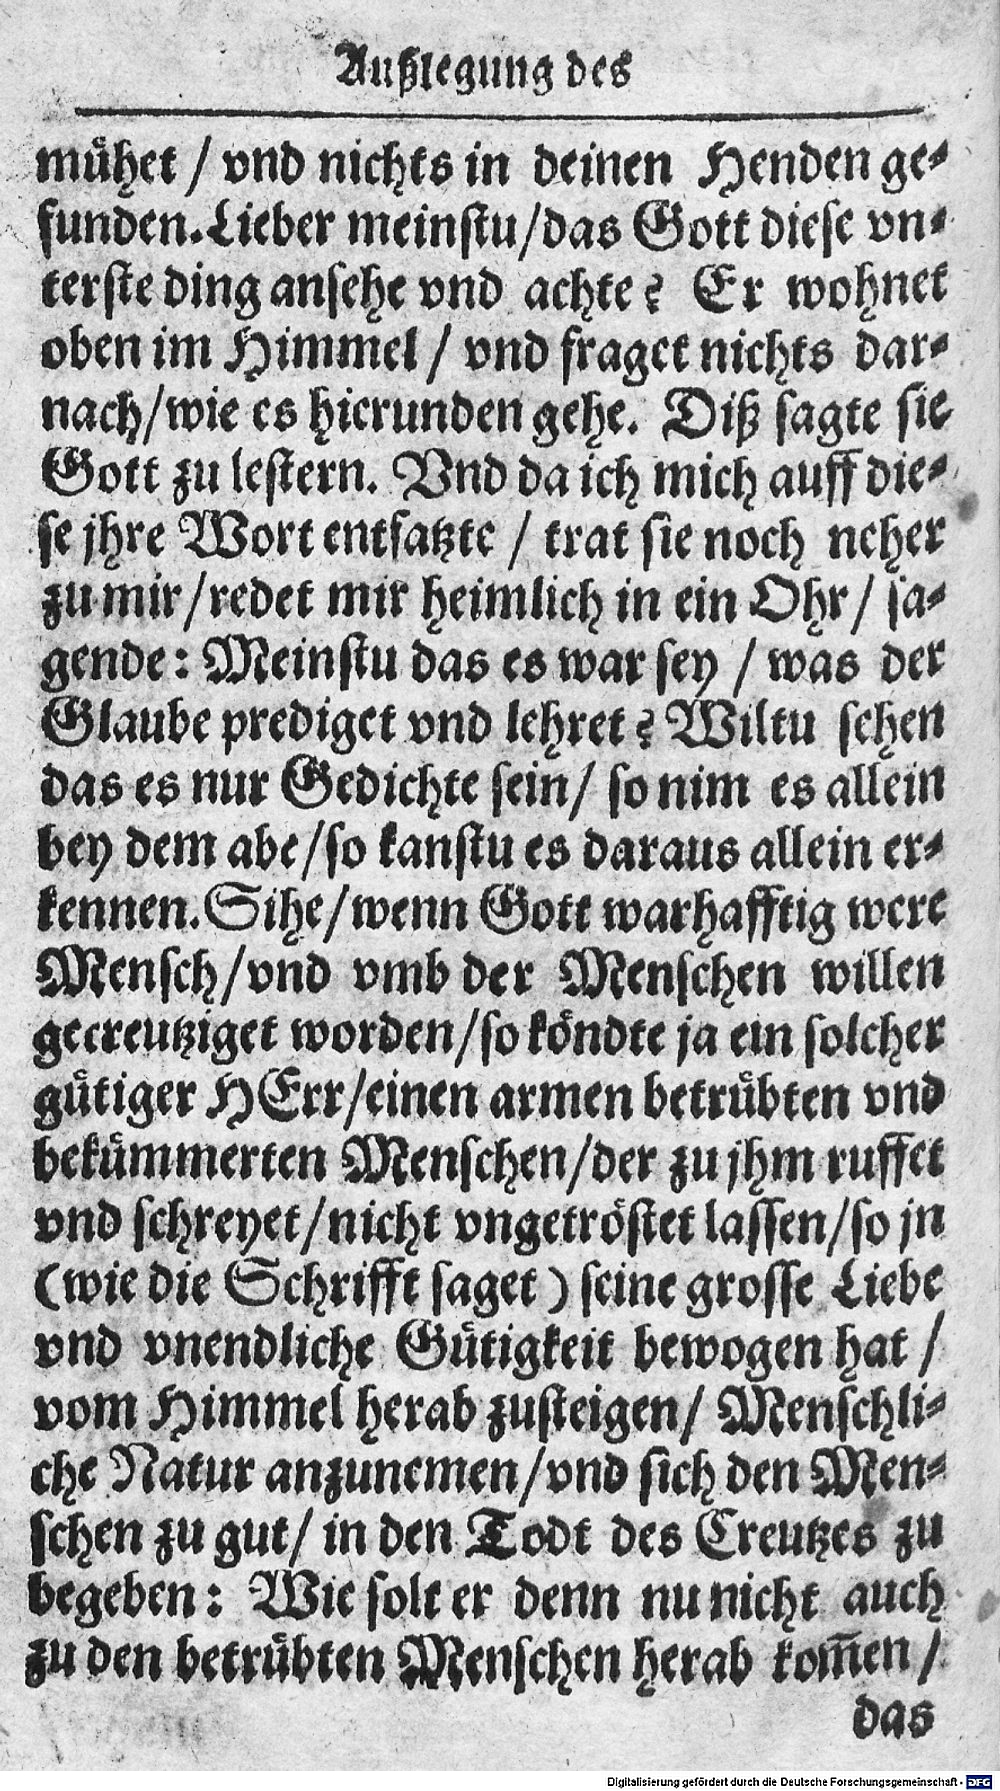 Außlegung des
mühet / vnd nichts in deinen Henden ge-
funden. Lieber meinstu / das Gott diese vn-
terste ding ansehe vnd achte? Er wohnet
oben im Himmel / vnd fraget nichts dar-
nach / wie es hierunden gehe. Diß sagte sie
Gott zu lestern. Vnd da ich mich auff die-
se jhre Wort entsatzte / trat sie noch neher
zu mir / redet mir heimlich in ein Ohr / sa-
gende: Meinstu das es war sey / was der
Glaube prediget vnd lehret? Wiltu sehen
das es nur Gedichte sein / so nim es allein
bey dem abe / so kanstu es daraus allein er-
kennen. Sihe / wenn Gott warhafftig were
Mensch / vnd vmb der Menschen willen
gecreutziget worden / so köndte ja ein solcher
gütiger HErr / einen armen betrübten vnd
bekümmerten Menschen / der zu jhm ruffet
vnd schreyet / nicht vngetröstet lassen / so jn
(wie die Schrifft saget) seine grosse Liebe
vnd vnendliche Gütigkeit bewogen hat /
vom Himmel herab zusteigen / Menschli-
che Natur anzunemen / vnd sich den Men-
schen zu gut / in den Todt des Creutzes zu
begeben: Wie solt er denn nu nicht auch
zu den betrübten Menschen herab kom̄en /
das
Digitalisierung gefördert durch die Deutsche Forschungsgemeinschaft - DFG